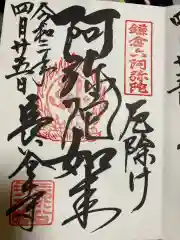 鎌倉六阿弥陀
厄除け
阿弥陀如来
令和
四月廿五日
長谷寺